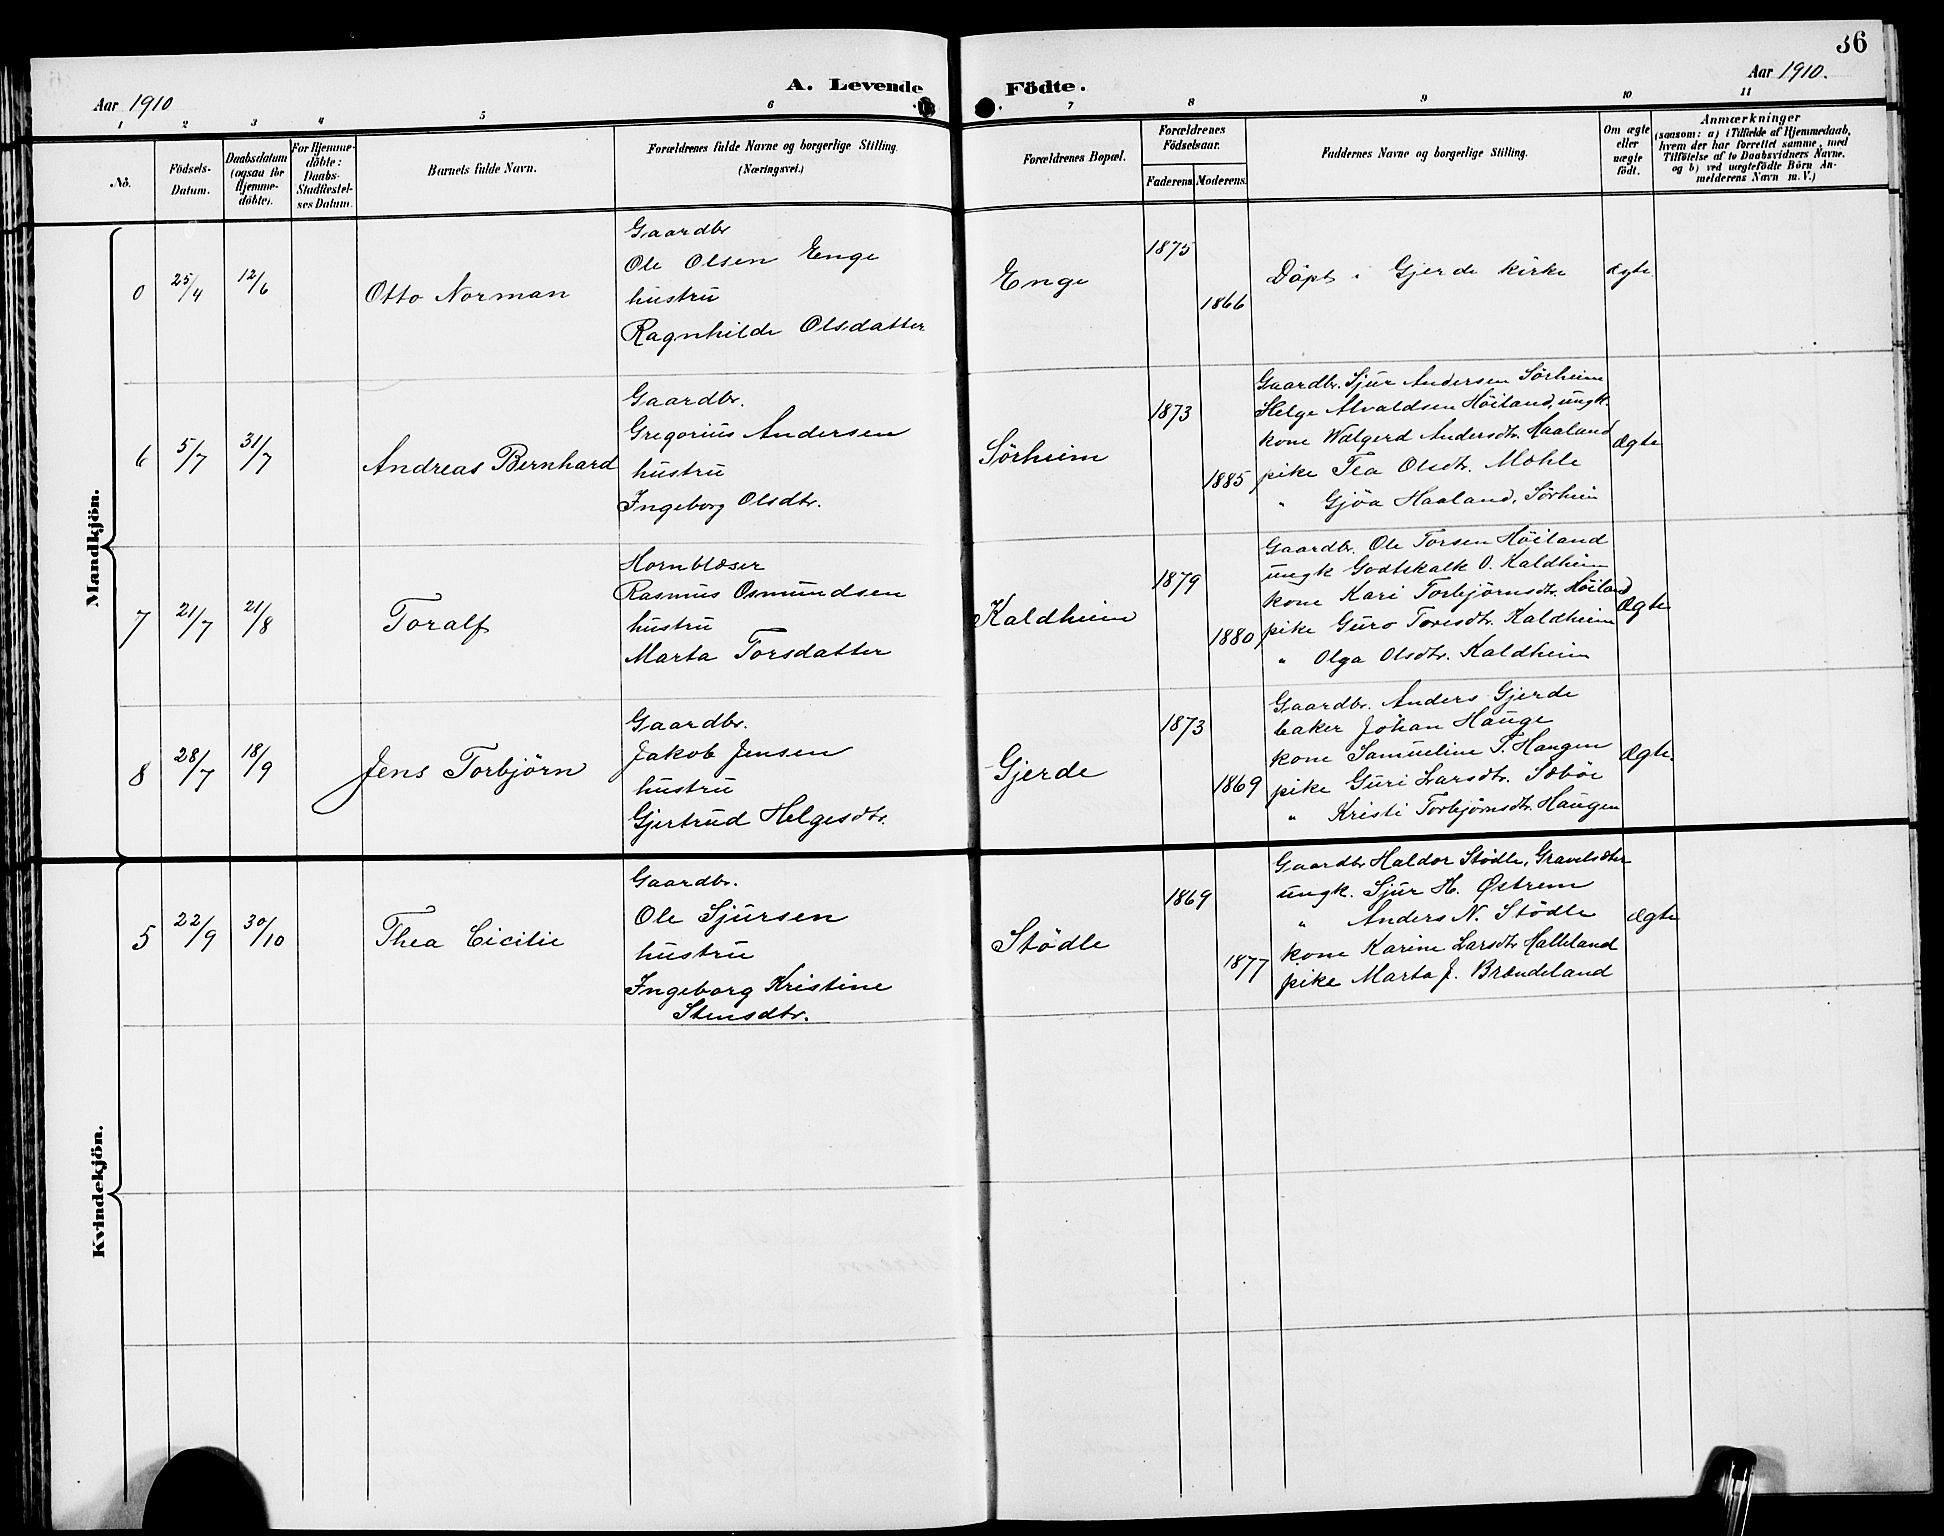 36
Aar 1910
A. Levende
Födte.
Aar 1910.
1 2 3 4 5 6 7 8 9 10 11
No.
Födsels-
Datum.
Daabsdatum
(ogsaa for
Hjemme-
döbte).
For Hjemme-
döbte:
Daabs-
Stadfæstel-
ses Datum.
Barnets fulde Navn.
Forældrenes fulde Navne og borgerlige Stilling.
(Næringsvei.)
Forældrenes Bopæl.
Forældrenes
Födselsaar.
Faderens.
Moderens.
Faddernes Navne og borgerlige Stilling.
Om ægte
eller
uægte
födt.
Anmærkninger
(saasom: a) i Tilfælde af Hjemmedaab,
hvem der har forrettet samme, med
Tilföielse af to Daabsvidners Navne,
og b) ved uægtefödte Börn An-
melderens Navn m. V.)
Mandkjön.
0 25/4 12/6
Otto Norman
Gaardbr
Ole Olsen Enge
hustru
Ragnhilde Olsdatter
Enge
1875
1866
Döpt i Gjerde kirke
ægte
6 5/7 31/7
Andreas Bernhard
Gaardbr.
Gregorius Andersen
hustru
Ingeborg Olsdtr.
Sörheim
1873
1885
Gaardbr. Sjur Andersen Sörheim
Helge Alvaldsen Höiland, ungk.
kone Walgerd Andersdtr. Haaland
pike Tea Olsdtr. Mæhle
" Gjöa Haaland, Sörheim
Ægte
7 21/7 21/8
Toralf
Hornblæser
Rasmus Osmundsen
hustru
Marta Torsdatter
Kaldheim
1879
1880
Gaardbr. Ole Torsen Höiland
ungk Godtskalk O. Kaldheim
kone Kari Torbjörnsdtr. Höiland
pike Guro Toresdtr. Kaldheim
" Olga Olsdtr. Kaldheim
Ægte
8 28/7 18/9
Jens Torbjörn
Gaardbr.
Jakob Jensen
hustru
Gjertrud Helgesdtr.
Gjerde
1873
1869
Gaardbr. Anders Gjerde
baker Johan Hauge
kone Samueline T. Haugen
pike Guri Larsdtr. Sæböe
" Kristi Torbjörnsdtr. Haugen
Ægte.
Kvindekjön.
5 22/9 30/10
Thea Cicilie
Gaardbr.
Ole Sjursen
hustru
Ingeborg Kristine
Stensdtr.
Stödle
1869
1877
Gaardbr Haldor Stödle, Gravelsæter
ungk. Sjur H. Østrem
" Anders N. Stödle
kone Karine Larsdtr Halleland
pike Marta J. Brændeland
Ægte